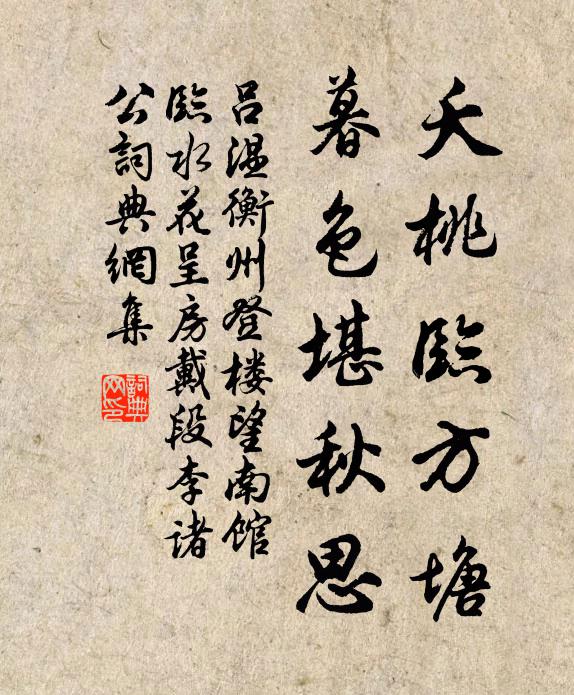 夭桃臨方塘
暮色堪秋思
吕温衡州登楼望南馆
臨水花呈房戴段李诸
公詞典網集
詞典网印